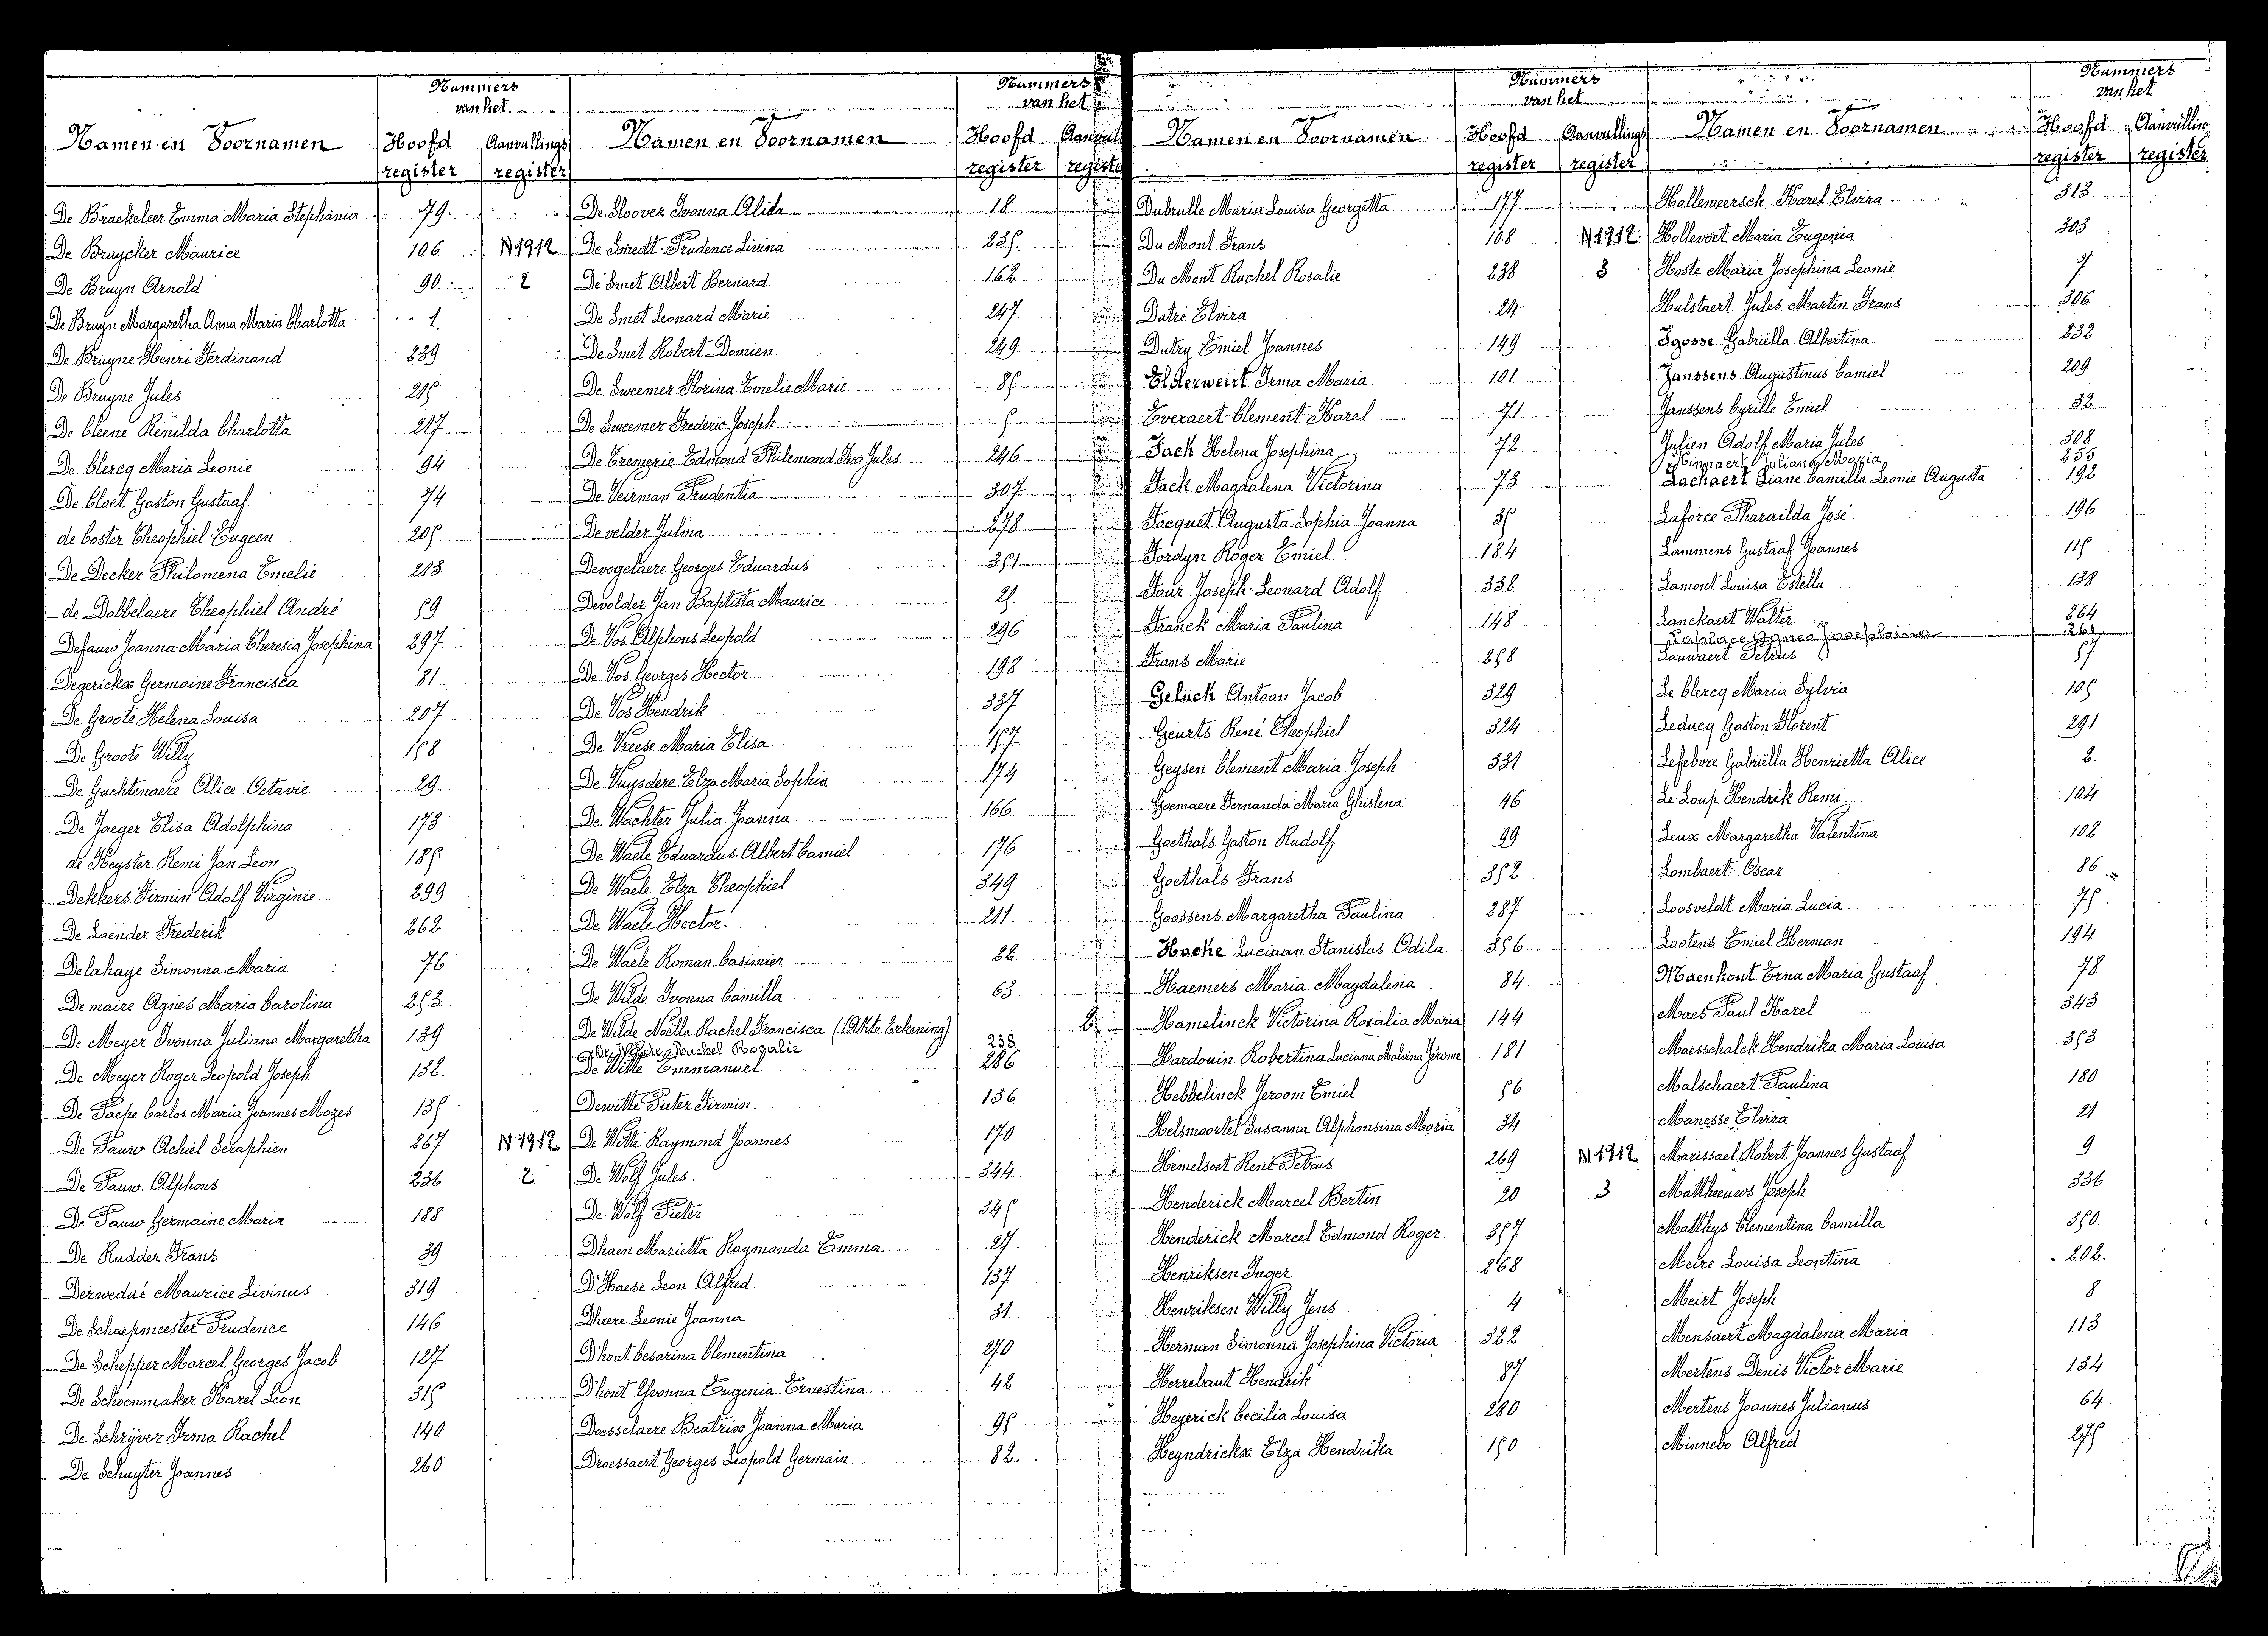 Nummers
van het
Namen en Voornamen Hoofd register Aanvullings register
De Braekeleer Emma Maria Stephania 79
De Bruycker Maurice 106 N1912
De Bruyn Arnold 90 2
De Bruyn Margaretha Anna Maria Charlotta 1
De Bruyne Henri Ferdinand 239
De Bruyne Jules 215
De Cleene Renilda Charlotta 217
De Clercq Maria Leonie 94
De Cloet Gaston Gustaaf 74
de Coster Theophiel Eugeen 205
De Decker Philomena Emelie 213
de Dobbelaere Theophiel André 59
Defauw Joanna Maria Theresia Josephina 297
Degerickx Germaine Francisca 81
De Groote Helena Louisa 207
De Groote Willy 158
De Guchtenaere Alice Octavie 29
De Jaeger Elisa Adolphina 173
de Keyster Remi Jan Leon 185
Dekkers Firmin Adolf Virginie 299
De Laender Frederik 262
Delahaye Simonna Maria 76
Demaire Agnes Maria Carolina 253
De Meyer Ivonna Juliana Margaretha 139
De Meyer Roger Leopold Joseph 132
De Paepe Carlos Maria Joannes Mozes 135
De Pauw Achiel Seraphien 267 N1912
De Pauw Alphons 236 2
De Pauw Germaine Maria 188
De Rudder Frans 39
Derwedué Maurice Livinus 319
De Schaepmeester Prudence 146
De Schepper Marcel Georges Jacob 127
De Schoenmaker Karel Leon 315
De Schrijver Irma Rachel 140
De Schuyter Joannes 260
Nummers
van het
Namen en Voornamen Hoofd register
De Sloover Ivonna Alida 18
De Smedt Prudence Livina 235
De Smet Albert Bernard 162
De Smet Leonard Marie 247
De Smet Robert Domien 249
De Sweemer Florina Emelie Marie 85
De Sweemer Frederic Joseph 5
De Tremerie Edmond Philemond Ivo Jules 246
De Veirman Prudentia 307
De velder Julma 278
Devogelaere Georges Eduardus 351
Devolder Jan Baptista Maurice 25
De Vos Alphons Leopold 296
De Vos Georges Hector 198
De Vos Hendrik 337
De Vreese Maria Elisa 157
De Vuysdere Elza Maria Sophia 174
De Wachter Julia Joanna 166
De Waele Eduardus Albert Camiel 176
De Waele Elza Theophiel 349
De Waele Hector 211
De Waele Roman Casimier 22
De Wilde Ivonna Camilla 63
De Wilde Noëlla Rachel Francisca (Akte Erkening) 2
De Wilde Rachel Rozalie 238
De Witte Emmanuel 286
Dewitte Pieter Firmin 136
De Witte Raymond Joannes 170
De Wolf Jules 344
De Wolf Pieter 345
Dhaen Marietta Raymonda Emma 27
D'Haese Leon Alfred 137
Dheere Leonie Joanna 31
D'hont Cesarina Clementina 270
D'hont Yvonna Eugenia Ernestina 42
Dosselaere Beatrix Joanna Maria 95
Droessaert Georges Leopold Germain 82
Nummers
van het
Namen en Voornamen Hoofd register Aanvullings register
Dubrulle Maria Louisa Georgetta 177
Du Mont Frans 108 N1912
Du Mont Rachel Rosalie 238 3
Dutré Elvira 24
Dutry Emiel Joannes 149
Elderweirt Irma Maria 101
Everaert Clement Karel 71
Fack Helena Josephina 72
Fack Magdalena Victorina 73
Focquet Augusta Sophia Joanna 35
Fordyn Roger Emiel 184
Four Joseph Leonard Adolf 338
Franck Maria Paulina 148
Frans Marie 258
Geluck Antoon Jacob 329
Geurts René Theophiel 324
Geysen Clement Maria Joseph 331
Goemaere Fernanda Maria Ghislena 46
Goethals Gaston Rudolf 99
Goethals Frans 352
Goossens Margaretha Paulina 287
Hacke Luciaan Stanislas Odila 356
Haemers Maria Magdalena 84
Hamelinck Victorina Rosalia Maria 144
Hardouin Robertina Luciana Malvina Jérome 181
Hebbelinck Jeroom Emiel 56
Helsmoortel Susanna Alphonsina Maria 34
Hemelsoet René Petrus 269 N1912
Henderick Marcel Bertin 20 3
Henderick Marcel Edmond Roger 357
Henriksen Inger 268
Henriksen Willy Jens 4
Herman Simonna Josephina Victoria 322
Herrebaut Hendrik 87
Heyerick Cecilia Louisa 280
Heyndrickx Elza Hendrika 150
Nummers
van het
Namen en Voornamen Hoofd register Aanvullin register
Hollemeersch Karel Elvira 313
Hollevoet Maria Eugenia 303
Hoste Maria Josephina Leonie 7
Hulstaert Jules Martin Frans 306
Igosse Gabriëlla Albertina 232
Janssens Augustinus Camiel 209
Janssens Cyrille Emiel 32
Julien Adolf Maria Jules 308
Minnaert Juliana Maria 255
Lachaert Liane Camilla Leonie Augusta 192
Laforce Pharailda José 196
Lammens Gustaaf Joannes 115
Lamont Louisa Estella 138
Lanckaert Walter 264
Laplace Agnes Josephina 261
Lauwaert Petrus 57
Le Clercq Maria Sylvia 105
Leducq Gaston Florent 291
Lefebvre Gabriëlla Henrietta Alice 2
Le Loup Hendrik Remi 104
Leux Margaretha Valentina 102
Lombaert Oscar 86
Loosveldt Maria Lucia 75
Lootens Emiel Herman 194
Maenhout Erna Maria Gustaaf 78
Maes Paul Karel 343
Maesschalck Hendrika Maria Louisa 353
Malschaert Paulina 180
Manesse Elvira 21
Marissael Robert Joannes Gustaaf 9
Mattheeuws Joseph 336
Matthys Clementina Camilla 350
Meire Louisa Leontina 202
Meirt Joseph 8
Mensaert Magdalena Maria 113
Mertens Denis Victor Marie 134
Mertens Joannes Julianus 64
Minnebo Alfred 275